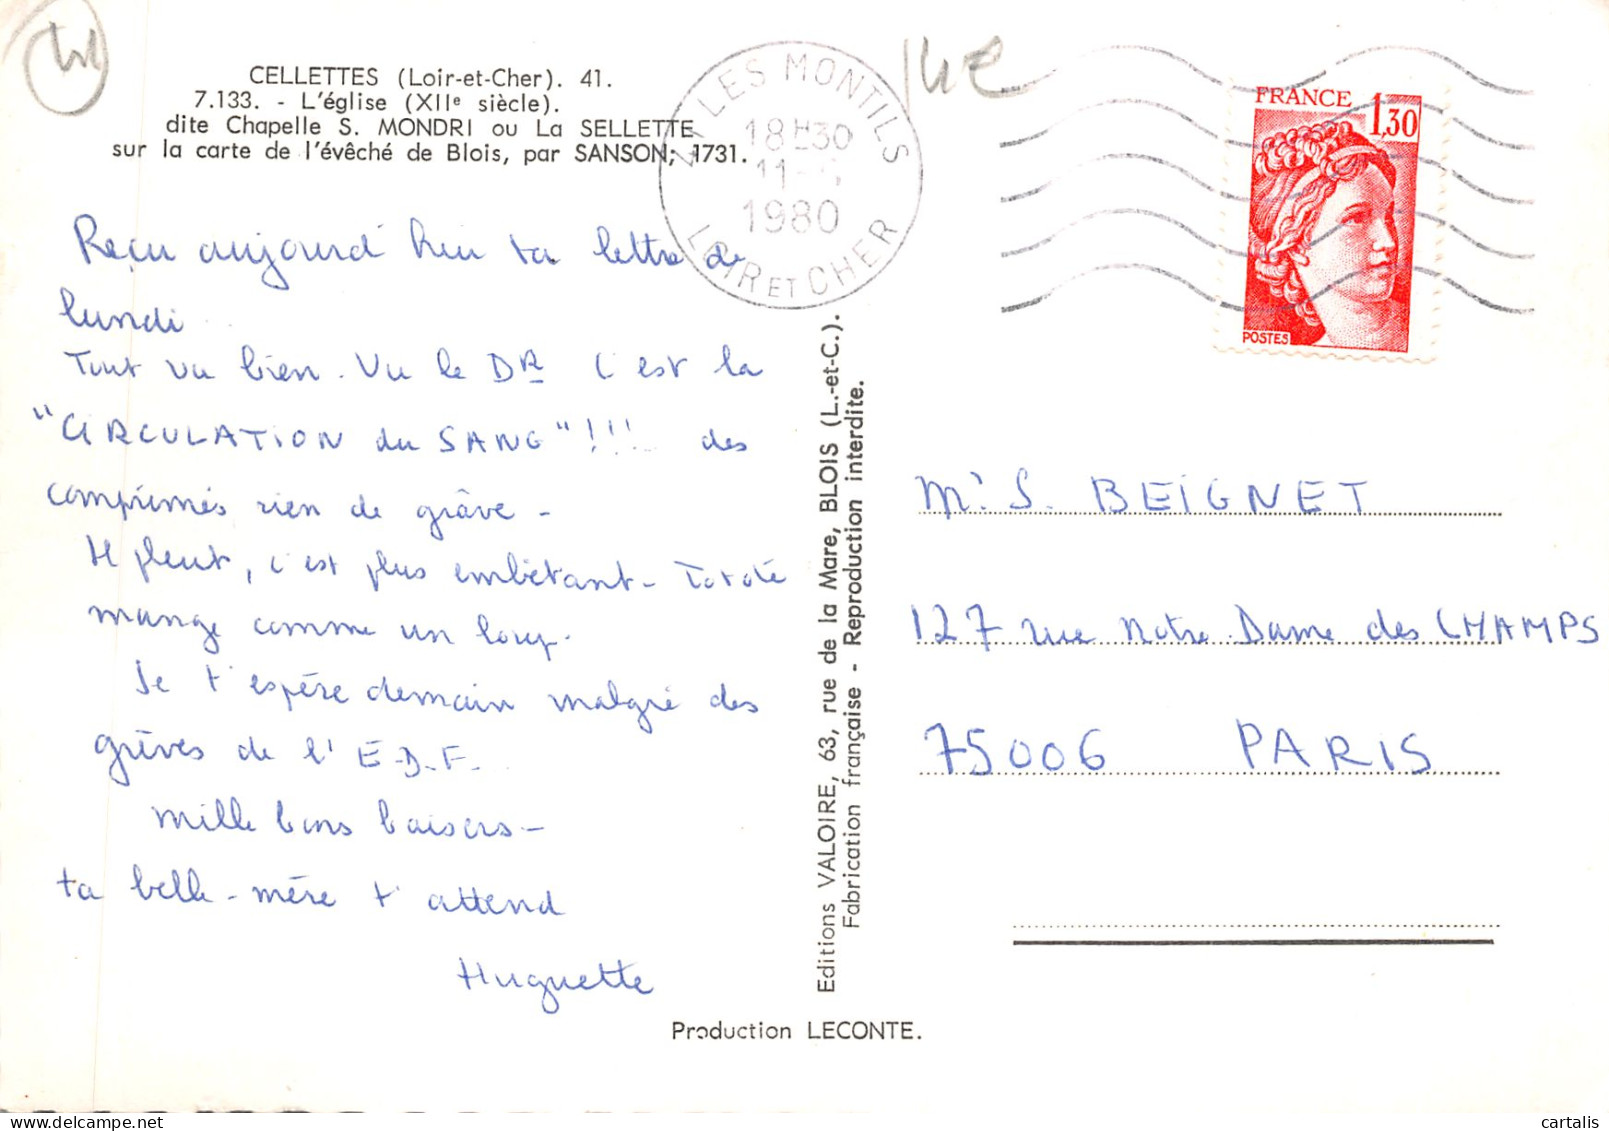 CELLETTES (Loir-et-Cher). 41.
7.133. - L'église (XIIe siècle).
dite Chapelle S. MONDRI ou La SELLETTE
sur la carte de l'évêché de Blois, par SANSON; 1731.
41 LES MONTILS
18H30
11-
1980
LOIR ET CHER
FRANCE
1,30
POSTES
Reçu aujourd'hui ta lettre de
lundi
Tout va bien. Vu le DR C'est la
"CIRCULATION du SANG"!!! des
comprimés rien de grâve -
Il pleut, c'est plus embêtant - Totote
mange comme un loup.
Je t'espère demain malgré des
grèves de l'E.D.F.
Mille bons baisers -
ta belle-mère t'attend
Huguette
Editions VALOIRE, 63, rue de la Mare, BLOIS (L.-et-C.).
Fabrication française - Reproduction interdite.
Mr S. BEIGNET
127 rue Notre Dame des CHAMPS
75006 PARIS
Production LECONTE.
cartalis